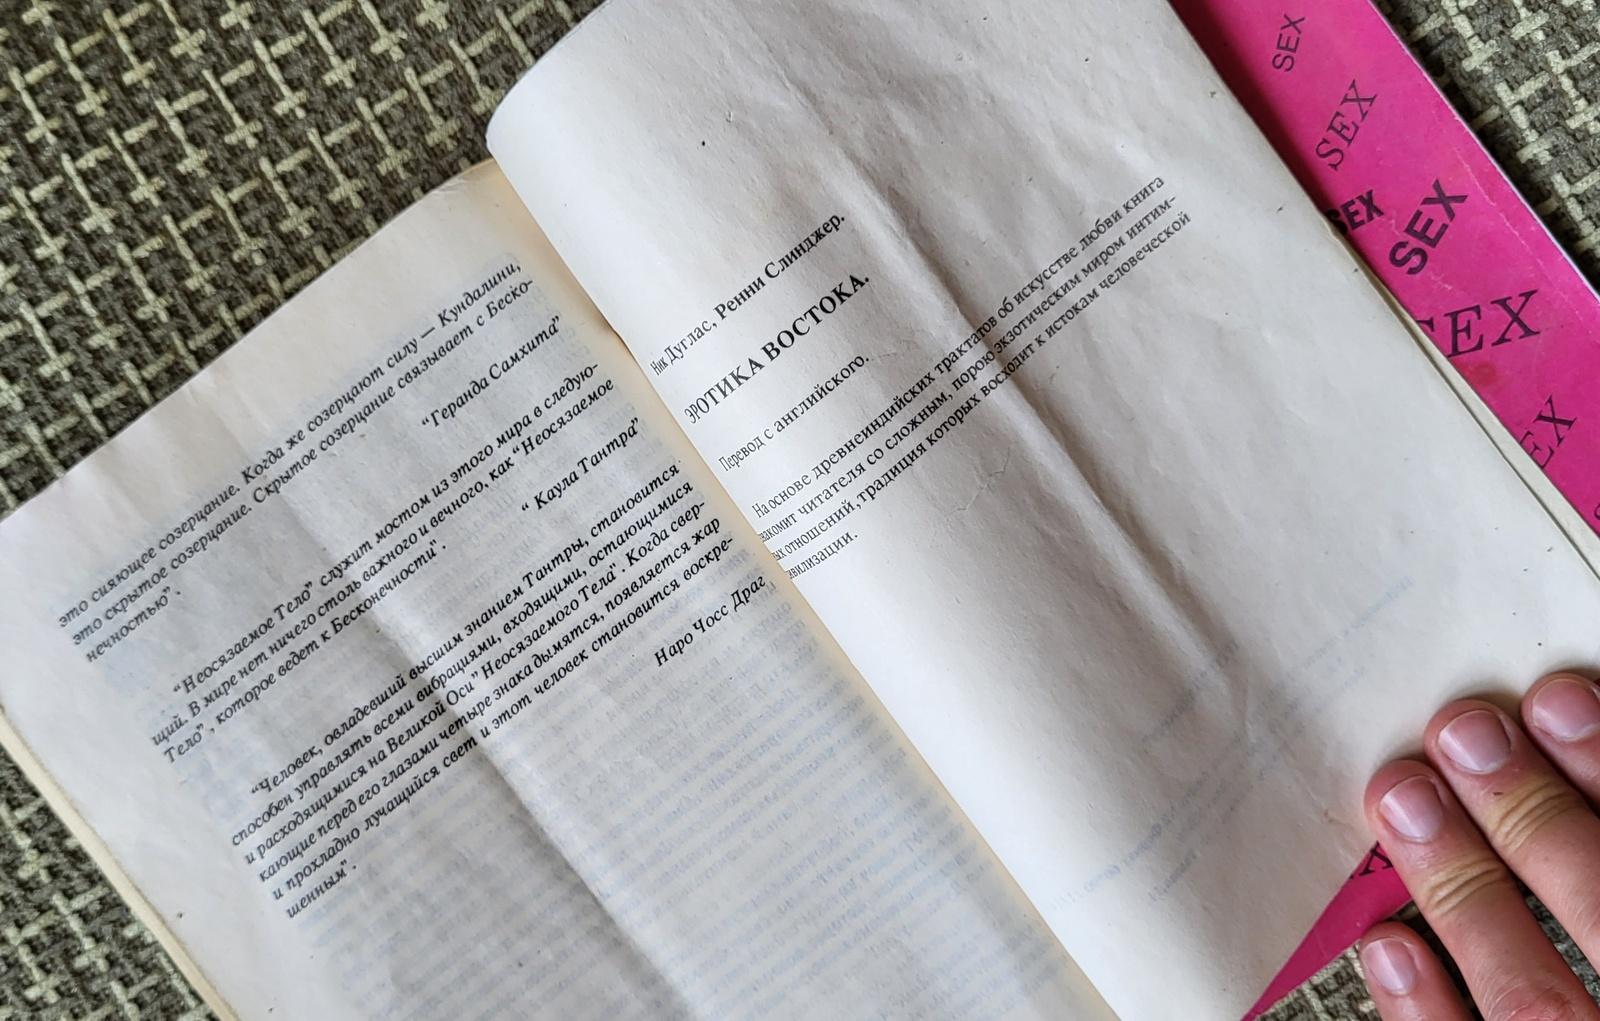 это сияющее созерцание. Когда же созерцают силу — Кундалини,
это скрытое созерцание. Скрытое созерцание связывает с Беско-
нечностью".
"Геранда Самхита"
"Неосязаемое Тело" служит мостом из этого мира в следую-
щий. В мире нет ничего столь важного и вечного, как "Неосязаемое
Тело", которое ведет к Бесконечности".
" Каула Тантра"
"Человек, овладевший высшим знанием Тантры, становится
способен управлять всеми вибрациями, входящими, остающимися
и расходящимися на Великой Оси" Неосязаемого Тела". Когда свер-
кающие перед его глазами четыре знака дымятся, появляется жар
и прохладно лучащийся свет и этот человек становится воскре-
шенным".
Наро Чосс Драг
Ник Дуглас, Ренни Слинджер.
ЭРОТИКА ВОСТОКА.
Перевод с английского.
На основе древнеиндийских трактатов об искусстве любви книга
знакомит читателя со сложным, порою экзотическим миром интим-
ных отношений, традиция которых восходит к истокам человеческой
цивилизации.
SEX
SEX
SEX
SEX
SEX
EX